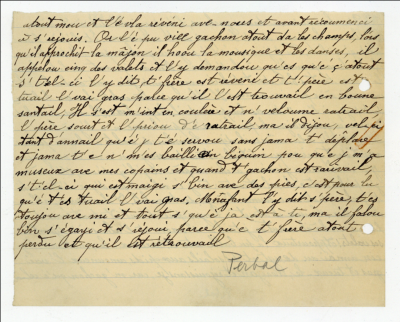 atout mou et l'é vla réveni ave nous et avant récoumenci
à s'rejoui. Or l'é pu viell gachon atout da les champs, lors
qu'il approchit la mâjon il hoou la mousique et les danses, il
appelou einq des valets et l'y demandou qu'és qu'é ç'atout
s't'el-ci l'y dit, t'frère est réveni et t'père est
tuail l'vai gras parce qu'il l'est trouvail en boune
santail, Il s'est m'int en coulère et n'veloume ratrail
l'père sourt et l'priou d'é ratrail, ma is dijou, vela
tant d'annail qu'é j't'é servou sans jama t'déplare
et jama t'é n'm'es baillé ein béquin pou qu'é j'm'a
museux avé mes copains et quand t'gachon est raivail
s't'el-ci qui est maigi s'bin avé des pies, c'est pour lu
qu'é t'és tuail l'vai gras, Meufant l'y dit s'père, t'és
toujou avé mi et tout s'qu'é j'a est à ti, ma il falou
bon s'égayi et s'réjoui, parce qu'é t'frère atout
perdu et qu'il est rétrouvail
Perbal